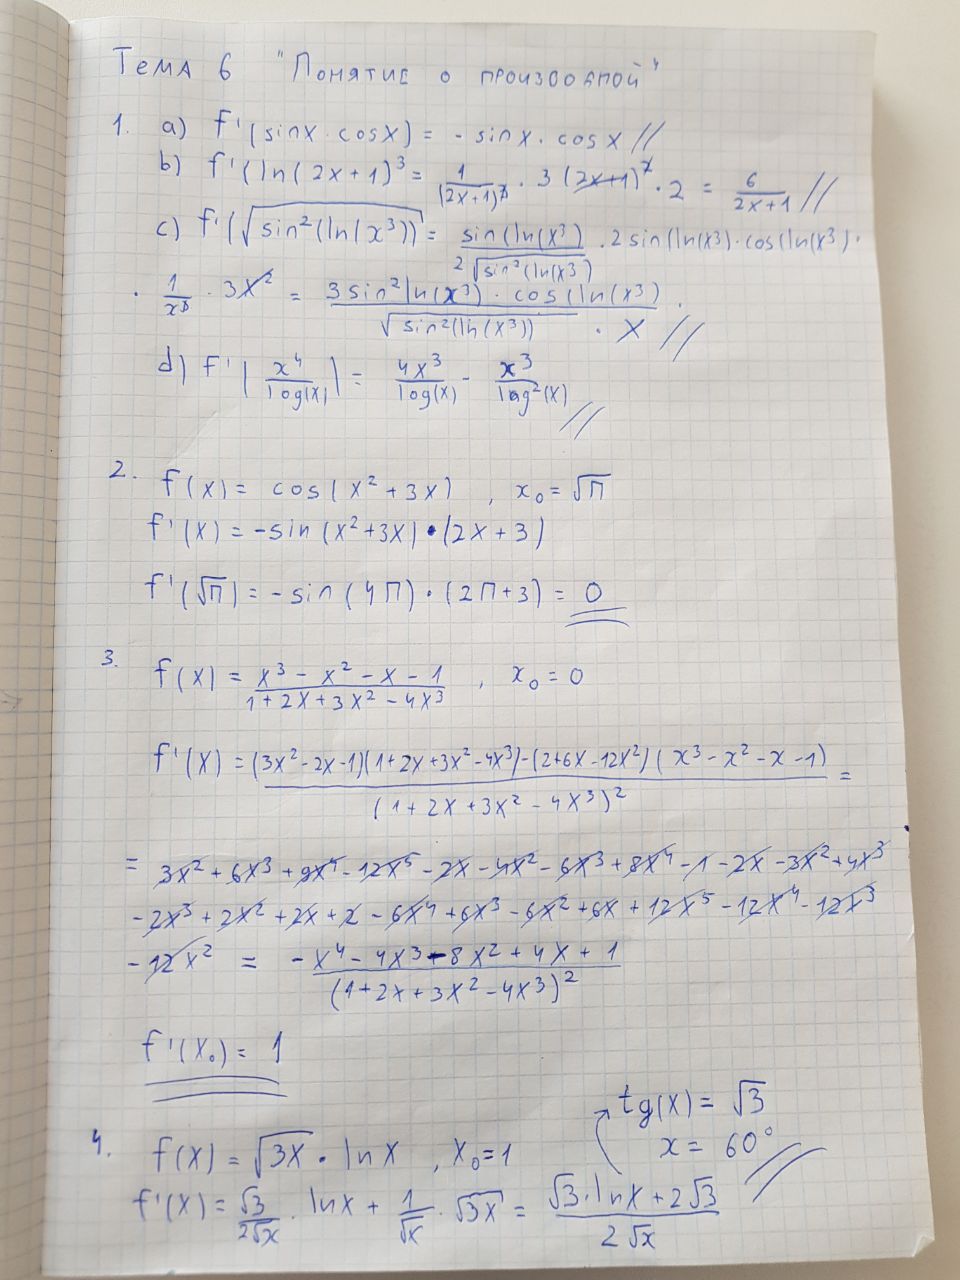 Тема 6 "Понятие о производной"
1. a) f'(sinx · cosx) = - sinx · cosx //
b) f'(ln(2x+1)³ = 1/(2x+1)³ · 3(2x+1)² · 2 = 6/(2x+1) //
c) f'(√(sin²(ln(x³))) = sin(ln(x³)/(2√(sin²(ln(x³)) · 2sin(ln(x³) · cos(ln(x³) ·
· 1/x³ · 3x² = (3sin²ln(x³) · cos(ln(x³))/(√(sin²(ln(x³)) · x) //
d) f'(x⁴/log(x)) = 4x³/log(x) - x³/log²(x) //
2. f(x) = cos(x² + 3x) , x₀ = √π
f'(x) = -sin(x²+3x) · (2x+3)
f'(√π) = -sin(4π) · (2π+3) = 0
3. f(x) = (x³ - x² - x - 1)/(1+2x+3x² - 4x³) , x₀ = 0
f'(x) = ((3x²-2x-1)(1+2x+3x²-4x³)-(2+6x-12x²)(x³-x²-x-1))/(1+2x+3x² - 4x³)² =
= 3x² + 6x³ + 9x⁴ - 12x⁵ - 2x - 4x² - 6x³ + 8x⁴ - 1 - 2x - 3x² + 4x³
- 2x³ + 2x² + 2x + 2 - 6x⁴ + 6x³ - 6x² + 6x + 12x⁵ - 12x⁴ - 12x³
- 12x² = (-x⁴ - 4x³ - 8x² + 4x + 1)/(1+2x+3x²-4x³)²
f'(x₀) = 1
tg(x) = √3
x = 60° //
4. f(x) = √3x · lnx , x₀=1
f'(x) = √3/2√x · lnx + 1/√x · √3x = (√3·lnx+2√3)/2√x